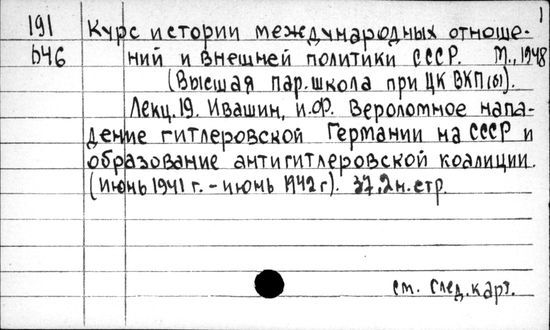 1
191 Курс истории международных отноше-
б46 ний и внешней политики СССР. М., 1948
(Высшая пар. школа при ЦК ВКП(б)).
Лекц. 19. Ивашин, И.Ф. Вероломное напа-
дение гитлеровской Германии на СССР и
образование антигитлеровской коалиции.
(июнь 1941 г. - июнь 1942 г). 37,2 н. стр.
см. след. карт.